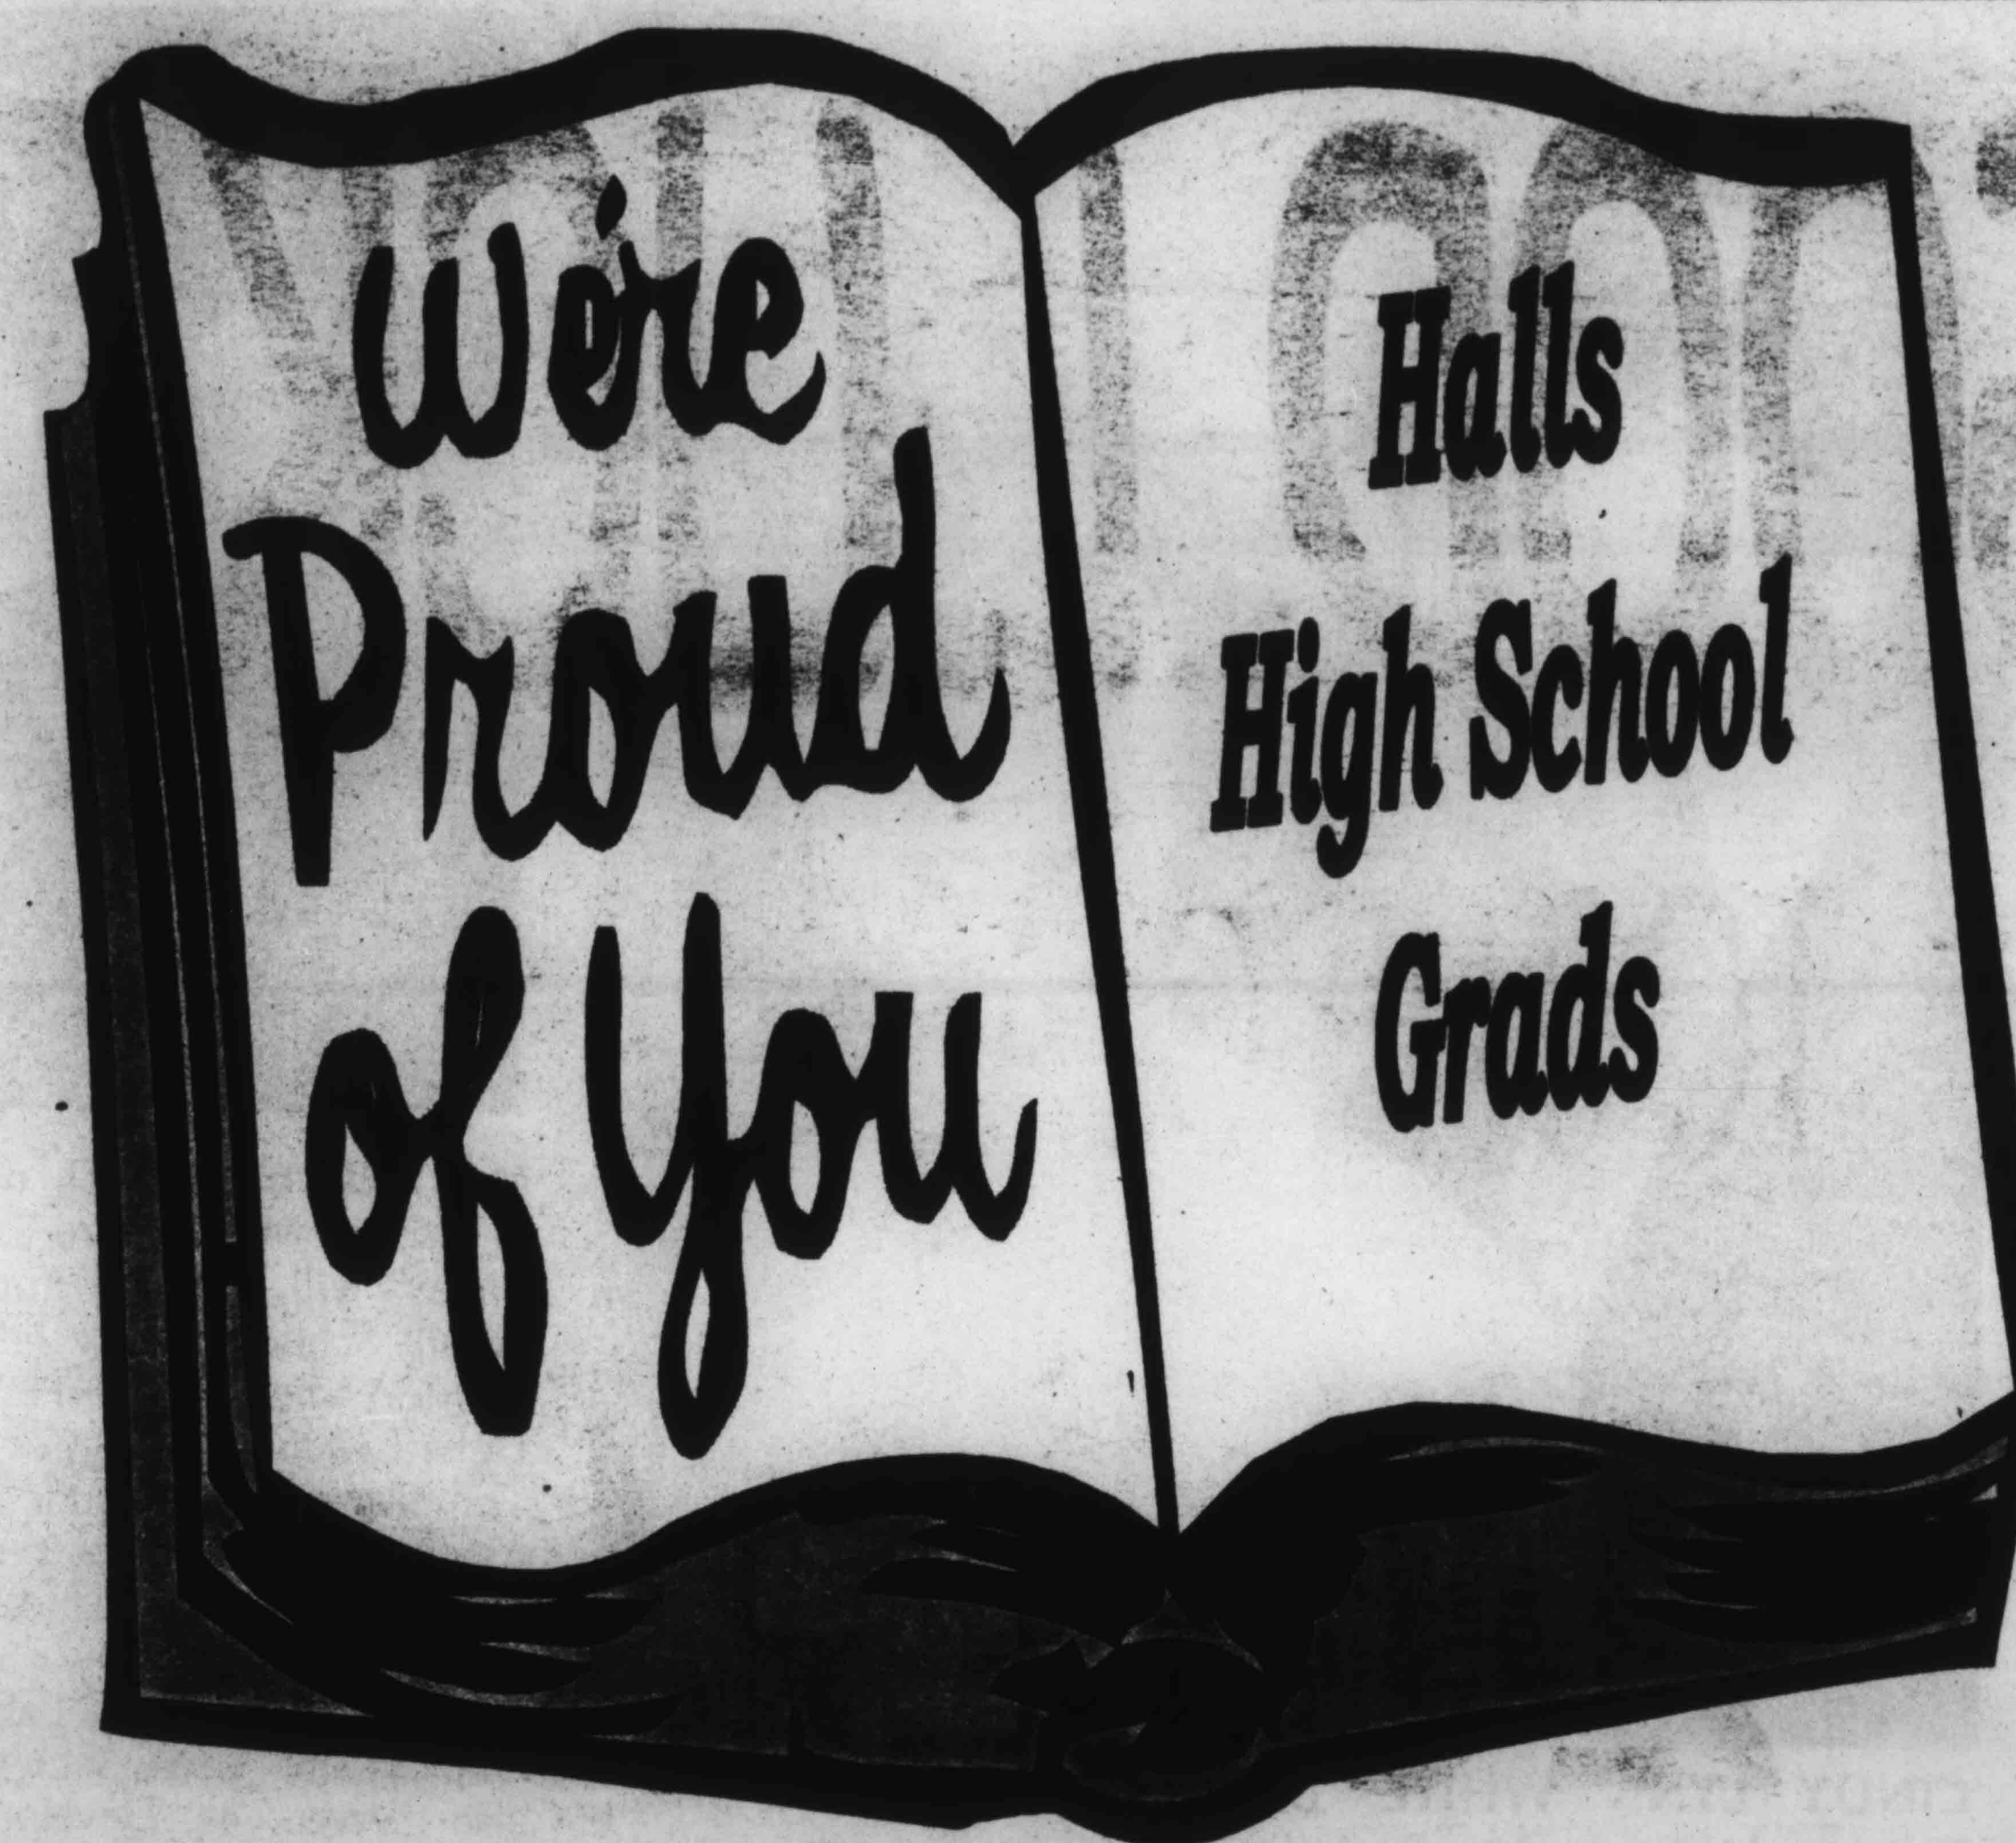 We're
Proud
of You
Halls
High School
Grads